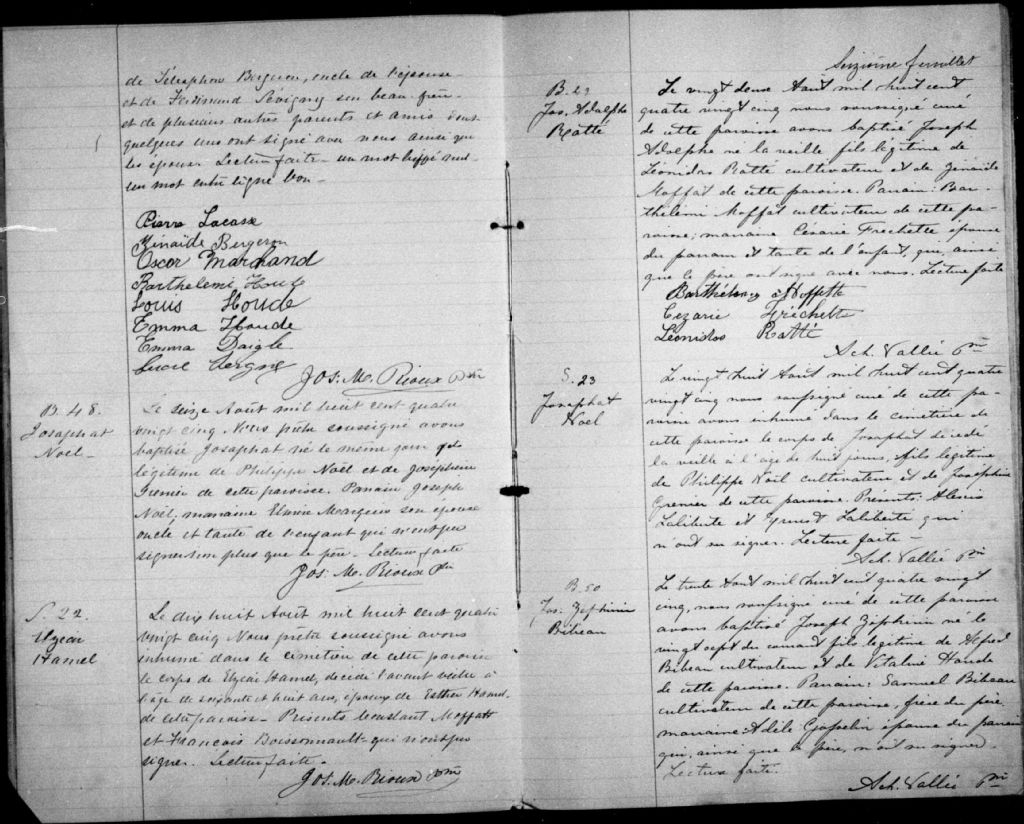 de Télesphore Bergeron, oncle de l'épouse
et de Ferdinand Sévigny son beau-frère
et de plusieurs autres parents et amis dont
quelques uns ont signé avec nous ainsi que
les époux. Lecture faite - un mot biffé nul -
un mot entre ligne bon -
Pierre Lacasse
Zinaïde Bergeron
Oscar Marchand
Barthelemi Houle
Louis Houde
Emma Houde
Emma Daigle
Vergne
Jos. M. Rioux Ptre
B. 48.
Josaphat
Noël -
Le seize Août mil huit cent quatre
vingt cinq. Nous prêtre soussigné avons
baptisé Josaphat né le même jour fils
légitime de Philippe Noël et de Josephine
Grenier de cette paroisse. Parrain Joseph
Noël, marraine son épouse
oncle et tante de l'enfant qui n'ont pu
signer non plus que le père. Lecture faite
Jos. M. Rioux Ptre
S. 22.
Elzear
Hamel
Le dix huit Août mil huit cent quatre
vingt cinq Nous prêtre soussigné avons
inhumé dans le cimetière de cette paroisse
le corps de Elzéar Hamel, décédé l'avant veille à
l'âge de soixante et huit ans, époux de Esther Hamel
de cette paroisse - Présents Constant Moffatt
et François Boissonnault - qui n'ont pu
signer. Lecture faite -
Jos. M. Rioux Ptre
Seizième feuillet
B. 49
Jos. Adolphe
Ratté
Le vingt deux Août mil huit cent
quatre vingt cinq nous soussigné curé
de cette paroisse avons baptisé Joseph
Adolphe né la veille fils légitime de
Léonidas Ratté cultivateur et de Zénaïde
Moffat de cette paroisse. Parrain: Bar-
thélemi Moffat cultivateur de cette pa-
roisse; marraine Césarie Frechette épouse
du parrain et tante de l'enfant, qui, ainsi
que le père ont signé avec nous. Lecture faite
Barthélemy Moffette
Cezarie Fréchette
Léonidas Ratté
Ach. Vallée Ptre
S. 23
Josaphat
Noel
Le vingt huit Août mil huit cent quatre
vingt cinq nous soussigné curé de cette pa-
roisse avons inhumé dans le cimetière de
cette paroisse le corps de Josaphat décédé
la veille à l'âge de huit jours, fils légitime
de Philippe Noël cultivateur et de Joséphine
Grenier de cette paroisse. Présents: Alexis
Laliberté et Ernest Laliberté qui
n'ont su signer. Lecture faite -
Ach. Vallée Ptre
B. 50
Jos. Zéphirin
Bibeau
Le trente Août mil huit cent quatre vingt
cinq, nous soussigné curé de cette paroisse
avons baptisé Joseph Zéphirin né le
vingt sept du courant fils légitime de Alfred
Bibeau cultivateur et de Vitaline Houde
de cette paroisse. Parrain: Samuel Bibeau
cultivateur de cette paroisse, frère du père,
marraine Adèle Gosselin épouse du parrain
qui, ainsi que le père, n'ont su signer.
Lecture faite.
Ach. Vallée Ptre